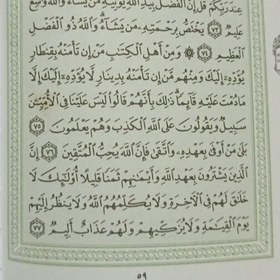 عِندَ رَبِّكُمْ قُلْ إِنَّ ٱلْفَضْلَ بِيَدِ ٱللَّهِ يُؤْتِيهِ مَن يَشَآءُ وَٱللَّهُ وَٰسِعٌ
عَلِيمٌ ٧٣ يَخْتَصُّ بِرَحْمَتِهِۦ مَن يَشَآءُ وَٱللَّهُ ذُو ٱلْفَضْلِ
ٱلْعَظِيمِ ٧٤ ۞ وَمِنْ أَهْلِ ٱلْكِتَٰبِ مَنْ إِن تَأْمَنْهُ بِقِنطَارٍ
يُؤَدِّهِۦٓ إِلَيْكَ وَمِنْهُم مَّنْ إِن تَأْمَنْهُ بِدِينَارٍ لَّا يُؤَدِّهِۦٓ إِلَيْكَ إِلَّا
مَا دُمْتَ عَلَيْهِ قَآئِمًا ذَٰلِكَ بِأَنَّهُمْ قَالُوا۟ لَيْسَ عَلَيْنَا فِى ٱلْأُمِّيِّـۧنَ
سَبِيلٌ وَيَقُولُونَ عَلَى ٱللَّهِ ٱلْكَذِبَ وَهُمْ يَعْلَمُونَ ٧٥
بَلَىٰ مَنْ أَوْفَىٰ بِعَهْدِهِۦ وَٱتَّقَىٰ فَإِنَّ ٱللَّهَ يُحِبُّ ٱلْمُتَّقِينَ ٧٦ إِنَّ
ٱلَّذِينَ يَشْتَرُونَ بِعَهْدِ ٱللَّهِ وَأَيْمَٰنِهِمْ ثَمَنًا قَلِيلًا أُو۟لَٰٓئِكَ لَا
خَلَٰقَ لَهُمْ فِى ٱلْءَاخِرَةِ وَلَا يُكَلِّمُهُمُ ٱللَّهُ وَلَا يَنظُرُ إِلَيْهِمْ
يَوْمَ ٱلْقِيَٰمَةِ وَلَا يُزَكِّيهِمْ وَلَهُمْ عَذَابٌ أَلِيمٌ ٧٧
٥٩